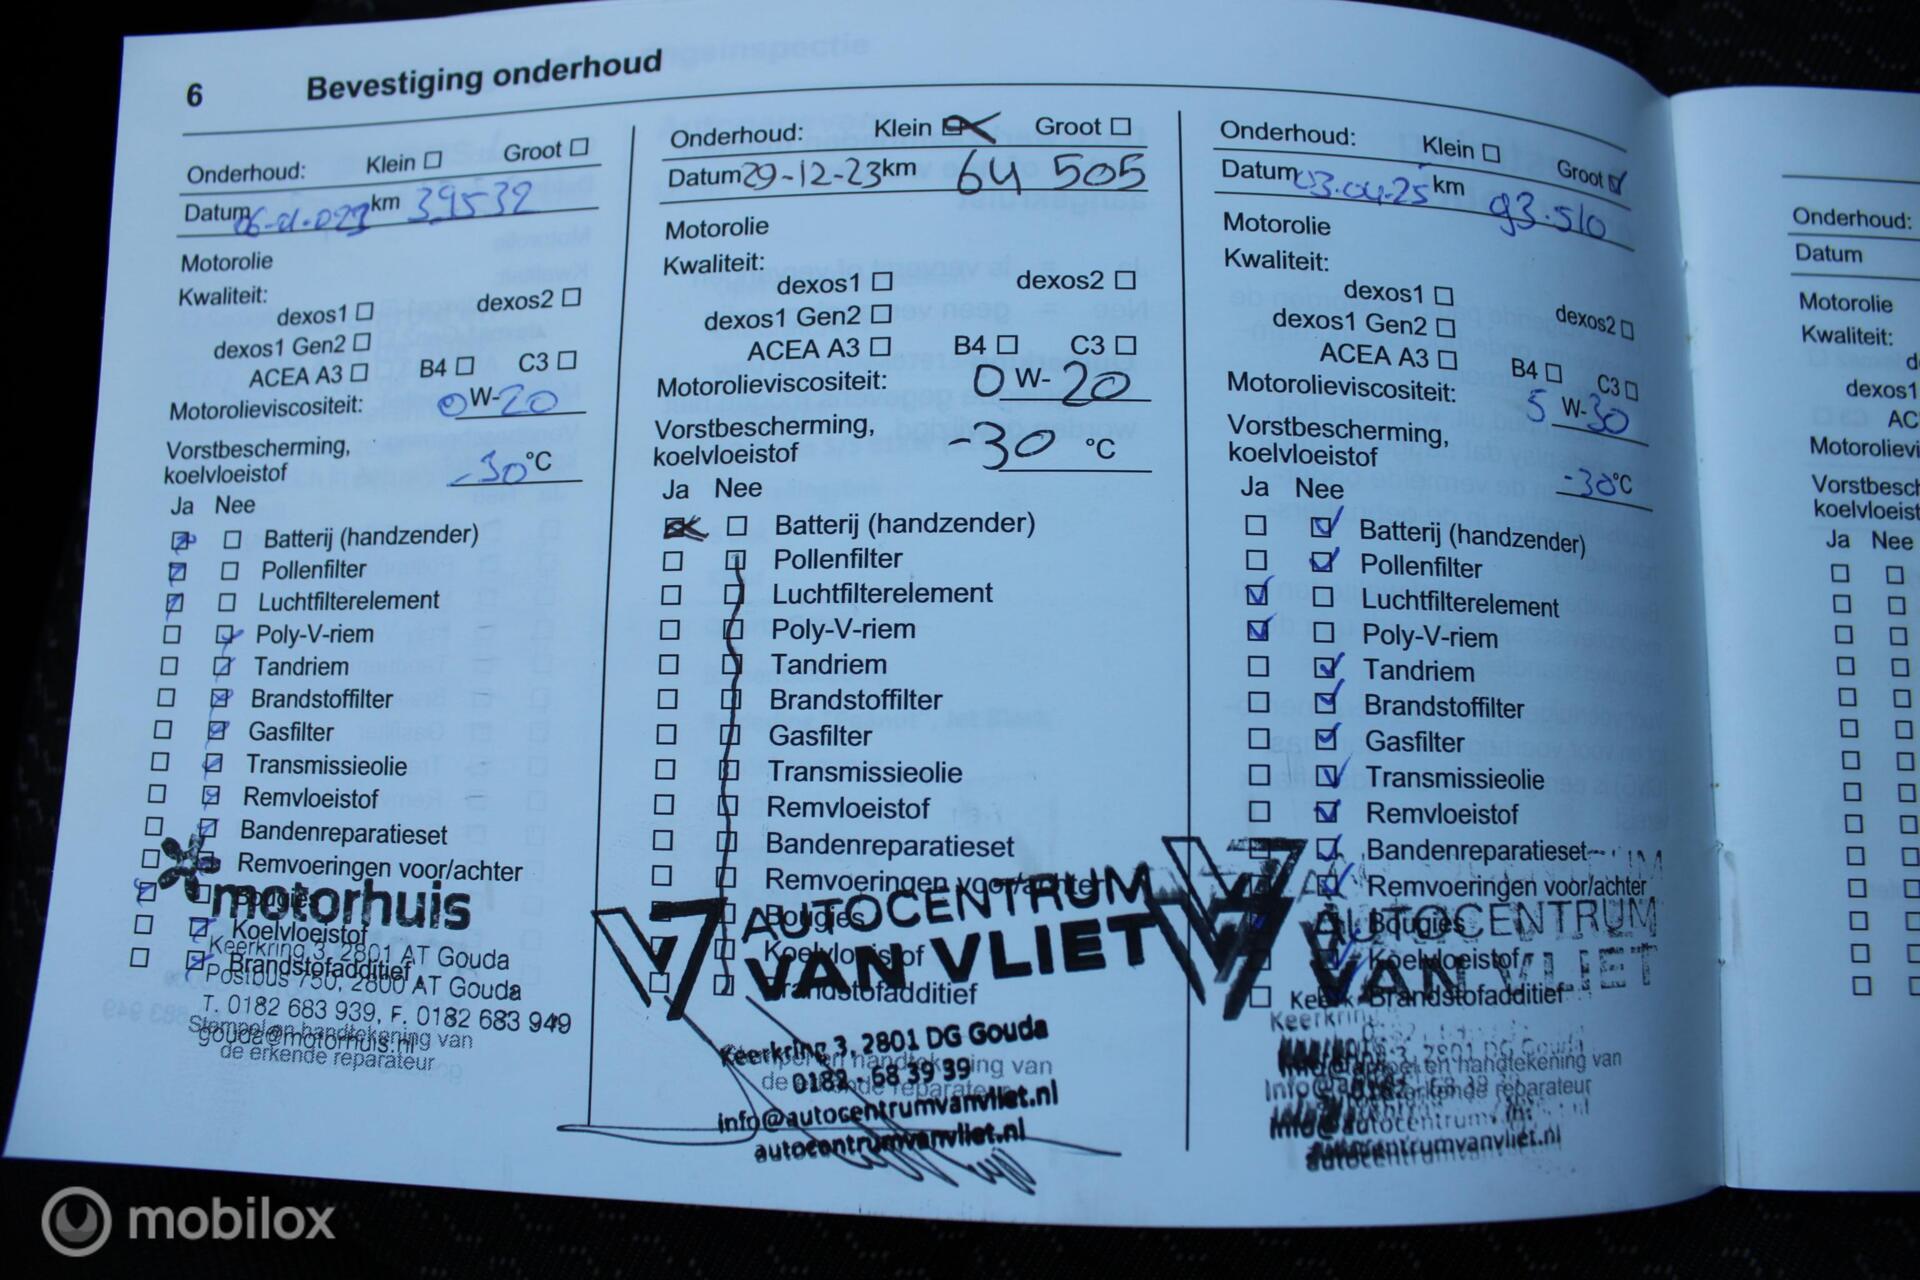 6 Bevestiging onderhoud
Onderhoud: Klein Groot
Datum km 39532
Motorolie
Kwaliteit:
dexos1 dexos2
dexos1 Gen2
ACEA A3 B4 C3
Motorolieviscositeit: 0 W-20
Vorstbescherming,
koelvloeistof -30 °C
Ja Nee
Batterij (handzender)
Pollenfilter
Luchtfilterelement
Poly-V-riem
Tandriem
Brandstoffilter
Gasfilter
Transmissieolie
Remvloeistof
Bandenreparatieset
Remvoeringen voor/achter
Bougies
motorhuis
Koelvloeistof
Keerkring 3, 2801 AT Gouda
Brandstofadditief
Postbus 750, 2800 AT Gouda
T. 0182 683 939, F. 0182 683 949
Stempel en handtekening van
gouda@motorhuis.nl
de erkende reparateur
Onderhoud: Klein Groot
Datum 29-12-23 km 64 505
Motorolie
Kwaliteit:
dexos1 dexos2
dexos1 Gen2
ACEA A3 B4 C3
Motorolieviscositeit: 0 W-20
Vorstbescherming,
koelvloeistof -30 °C
Ja Nee
Batterij (handzender)
Pollenfilter
Luchtfilterelement
Poly-V-riem
Tandriem
Brandstoffilter
Gasfilter
Transmissieolie
Remvloeistof
Bandenreparatieset
Remvoeringen voor/achter
AUTOCENTRUM
Bougies
VAN VLIET
Koelvloeistof
Brandstofadditief
Keerkring 3, 2801 DG Gouda
Stempel en handtekening van
0182 - 68 39 39
de erkende reparateur
info@autocentrumvanvliet.nl
autocentrumvanvliet.nl
Onderhoud: Klein Groot
Datum 03.04.25 km 93.510
Motorolie
Kwaliteit:
dexos1 dexos2
dexos1 Gen2
ACEA A3 B4 C3
Motorolieviscositeit: 5 W-30
Vorstbescherming,
koelvloeistof -30 °C
Ja Nee
Batterij (handzender)
Pollenfilter
Luchtfilterelement
Poly-V-riem
Tandriem
Brandstoffilter
Gasfilter
Transmissieolie
Remvloeistof
Bandenreparatieset
Remvoeringen voor/achter
AUTOCENTRUM
Bougies
Koelvloeistof
VAN VLIET
Brandstofadditief
Stempel en handtekening van
de erkende reparateur
autocentrumvanvliet.nl
Onderhoud:
Datum
Motorolie
Kwaliteit:
dexos1
AC
Motorolievi
Vorstbesch
koelvloeist
Ja Nee
mobilox